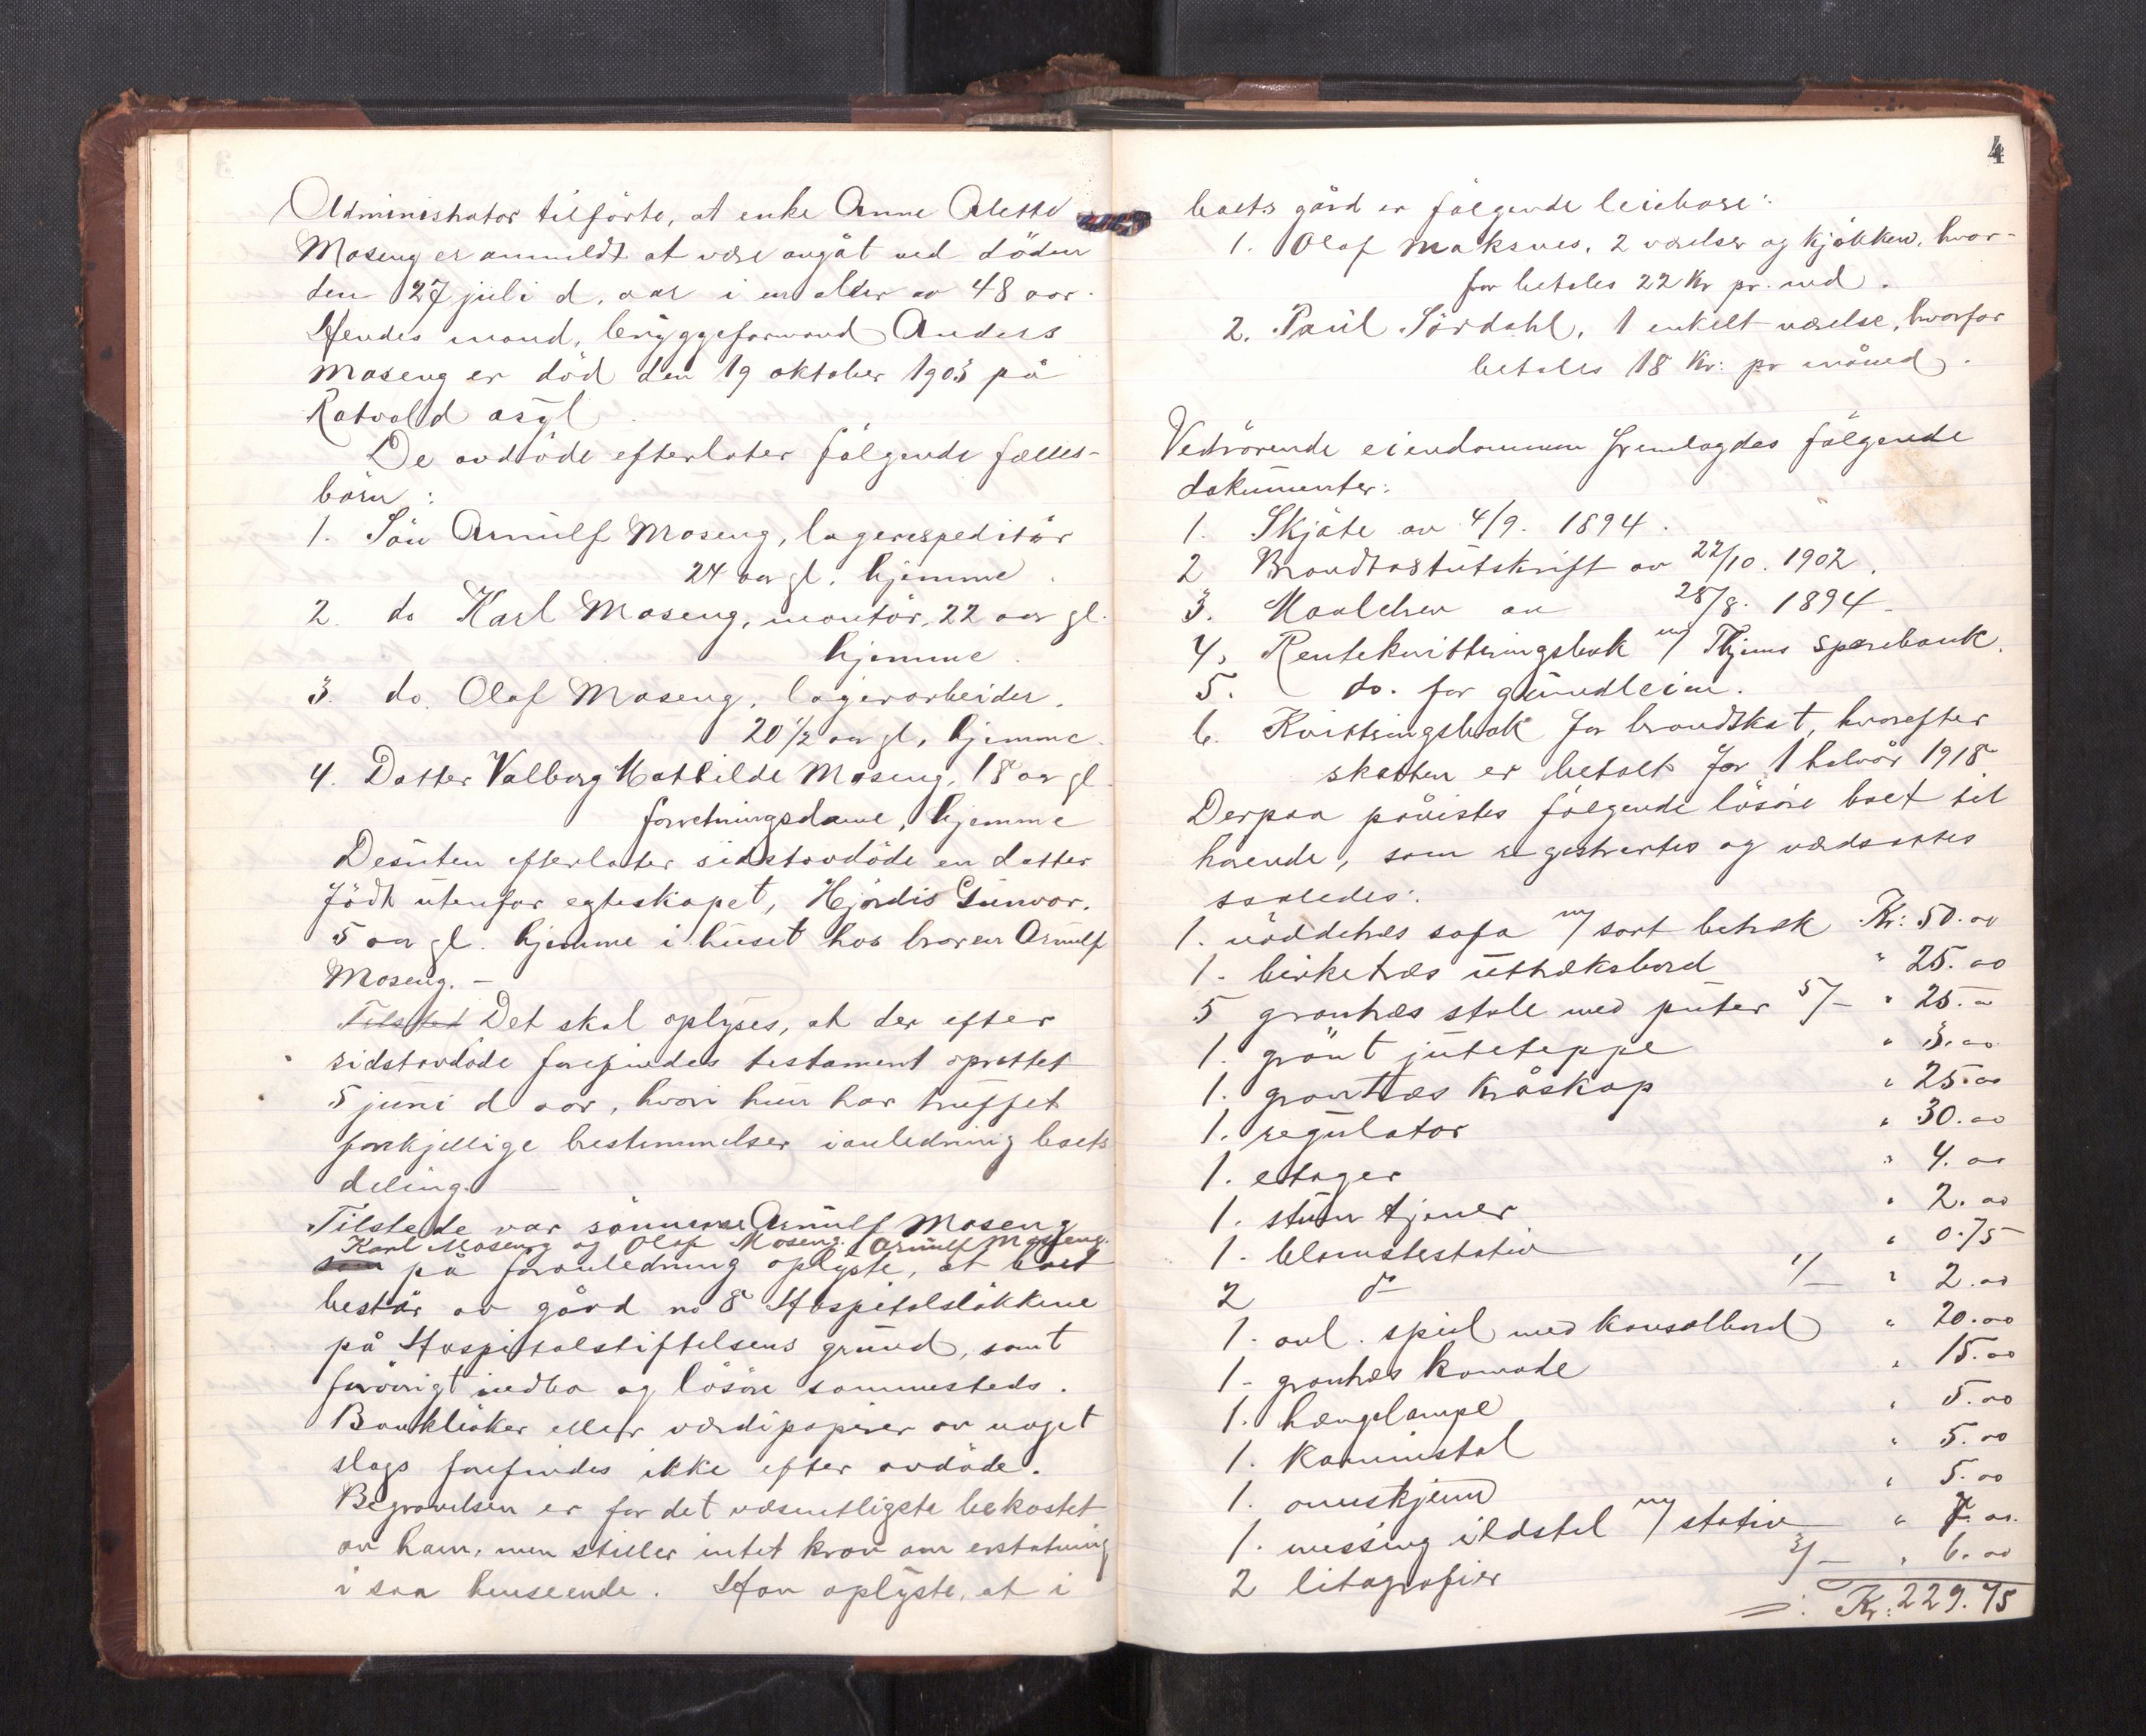 Administrator tilførte, at enke Anne Alette
Moseng er anmeldt at være avgåt ved døden
den 27 juli d. aar i en alder av 48 aar.
Hendes mand, bryggeformand Anders
Moseng er død den 19 oktober 1903 på
Rotvold asyl.
De avdøde efterlater følgende fælles-
børn:
1. Søn Arnulf Moseng, lagerexpeditør
24 aar gl. hjemme.
2. do Karl Moseng, montør, 22 aar gl.
hjemme.
3. do. Olaf Moseng, lagerarbeider,
20 1/2 aar gl, hjemme.
4. Datter Valborg Mathilde Moseng, 18 aar gl
forretningsdame, hjemme
Desuten efterlater sidstavdøde en datter
født utenfor egteskapet, Hjørdis Gunvor,
5 aar gl. hjemme i huset hos broren Arnulf
Moseng. -
Tilsted Det skal oplyses, at der efter
sidstavdøde forefindes testament oprettet
5 juni d aar, hvori hun har truffet
forskjellige bestemmelser i anledning boets
deling.
Tilstede var sønnerne Arnulf Moseng
Karl Moseng og Olaf Moseng. Arnulf Moseng.
som på foranledning oplyste, at boet
består av gård no 8 Hospitalsløkkene
på Hospitalstiftelsens grund, samt
forøvrigt indbo og løsøre sammesteds.
Bankbøker eller værdipapirer av noget
slags forefindes ikke efter avdøde.
Begravelsen er for det væsentligste bekostet
av ham, men stiller intet krav om erstatning
i saa henseende. Han oplyste, at i
4
boets gård er følgende leieboere:
1. Olaf Maksnes, 2 værelser og kjøkken, hvor-
for betales 22 Kr pr. md.
2. Paul Sørdahl, 1 enkelt værelse, hvorfor
betales 18 Kr: pr måned.
Vedrørende eiendommen fremlagdes følgende
dokumenter:
1. Skjøte av 4/9. 1894.
2 Brandtaxtutskrift av 22/10. 1902.
3. Maalebrev av 28/8. 1894.
4. Rentekvitteringsbok m/ Thjems sparebank.
5. do. for grundleien.
6. Kvitteringsbok for brandskat, hvorefter
skatten er betalt for 1 halvår 1918
Derpaa påvistes følgende løsøre boet til
hørende, som registrertes og værdsattes
saaledes:
1. nøddetræs sofa m/ sort betræk Kr: 50.00
1. birketræs uttræksbord " 25.00
5 grantræs stole med puter 5/- " 25.00
1. grønt juteteppe " 3.00
1. grantræs kråskap " 25.00
1. regulator " 30.00
1. etager " 4.00
1. stum tjener " 2.00
1. blomsterstativ " 0.75
2 do 1/- " 2.00
1. avl. speil med konsolbord " 20.00
1. grantræs komode " 15.00
1. hænglampe " 5.00
1. kaminstol " 5.00
1. ovnskjerm " 5.00
1. messing ildstel m/ stativ " 7.00
2 litografier 3/- " 6.00
=: Kr: 229.75